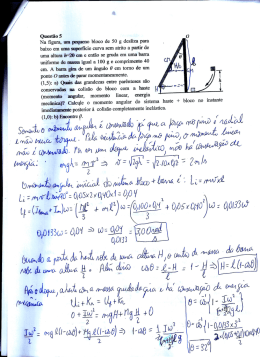 Questão 5
Na figura, um pequeno bloco de 50 g desliza para
baixo em uma superfície curva sem atrito a partir de
uma altura h=20 cm e então se gruda em uma barra
uniforme de massa igual a 100 g e comprimento 40
cm. A barra gira de um ângulo θ em torno de um
ponto O antes de parar momentaneamente.
(1,5): a) Quais das grandezas entre parênteses são
conservadas na colisão do bloco com a haste
(momento angular, momento linear, energia
mecânica)? Calcule o momento angular do sistema barra + bloco no instante
imediatamente posterior à colisão completamente inelástica.
(1,0): b) Encontre θ.
Somente o momento angular é conservado já que a força no pino é radial
e não exerce torque. Pela existência da força no pino, o momento linear
não é conservado. Por ser um choque inelástico, não há conservação de
energia: mgh = mv²/2 ⇒ v = √2gh = √2·10·0,2 = 2 m/s
O momento angular inicial do sistema bloco + barra é: Li = mvl
Li = 0,05×2×0,40 = 0,04
0,0133ω = 0,04 ⇒ ω = 0,04/0,0133
Quando a ponta da haste sobe de uma altura H, o centro de massa da barra
sobe de uma altura H/2. Além disso cosθ = (l-H)/l = 1 - H/l ⇒ H = l(1-cosθ)
Após o choque, a haste com a massa grudada gira e há conservação de energia
mecânica
Ui + Ki = Uf + Kf